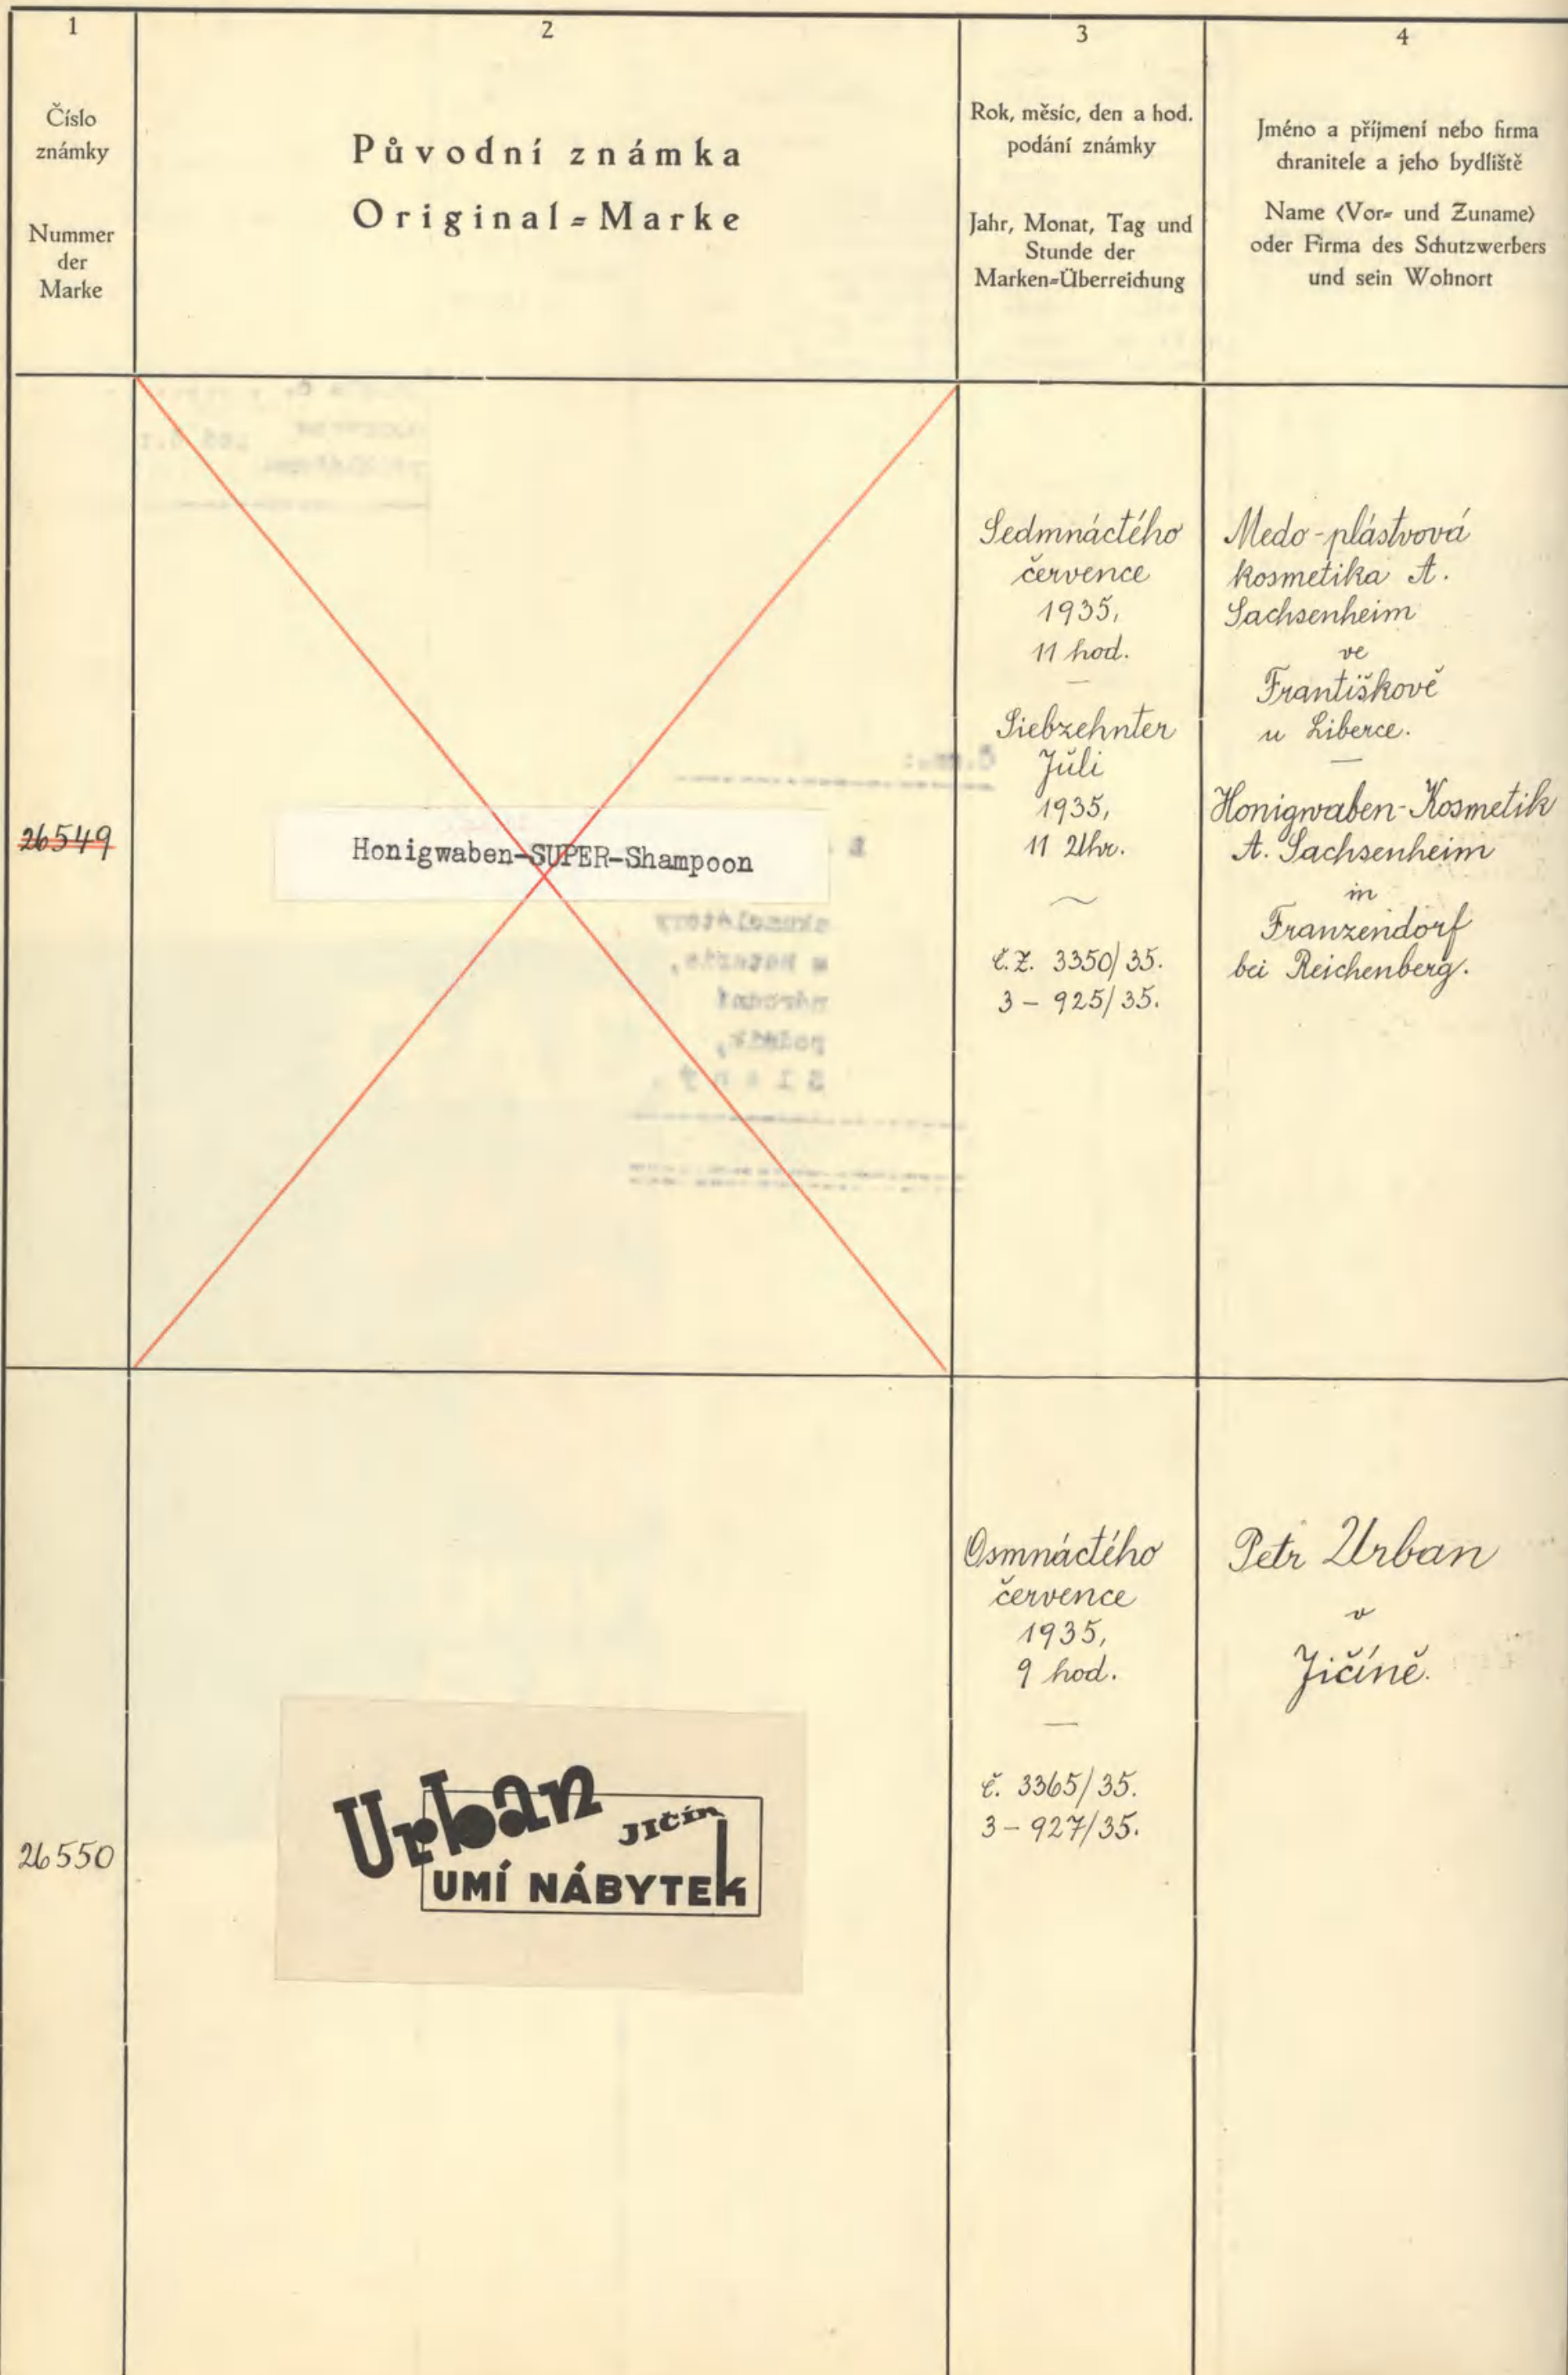 1
Číslo
známky
Nummer
der
Marke
2
Původní známka
Original=Marke
3
Rok, měsíc, den a hod.
podání známky
Jahr, Monat, Tag und
Stunde der
Marken=Überreichung
4
Jméno a příjmení nebo firma
chranitele a jeho bydliště
Name (Vor= und Zuname)
oder Firma des Schutzwerbers
und sein Wohnort
26549
Honigwaben-SUPER-Shampoon
Sedmnáctého
července
1935,
11 hod.
Siebzehnter
Juli
1935,
11 Uhr.
č.ž. 3350/35.
3 – 925/35.
Medo-plástvová
kosmetika A.
Sachsenheim
ve
Františkově
u Liberce.
Honigwaben-Kosmetik
A. Sachsenheim
in
Franzendorf
bei Reichenberg.
26550
Urban
JIČÍN
UMÍ NÁBYTEk
Osmnáctého
července
1935,
9 hod.
č. 3365/35.
3 – 927/35.
Petr Urban
v
Jičíně.